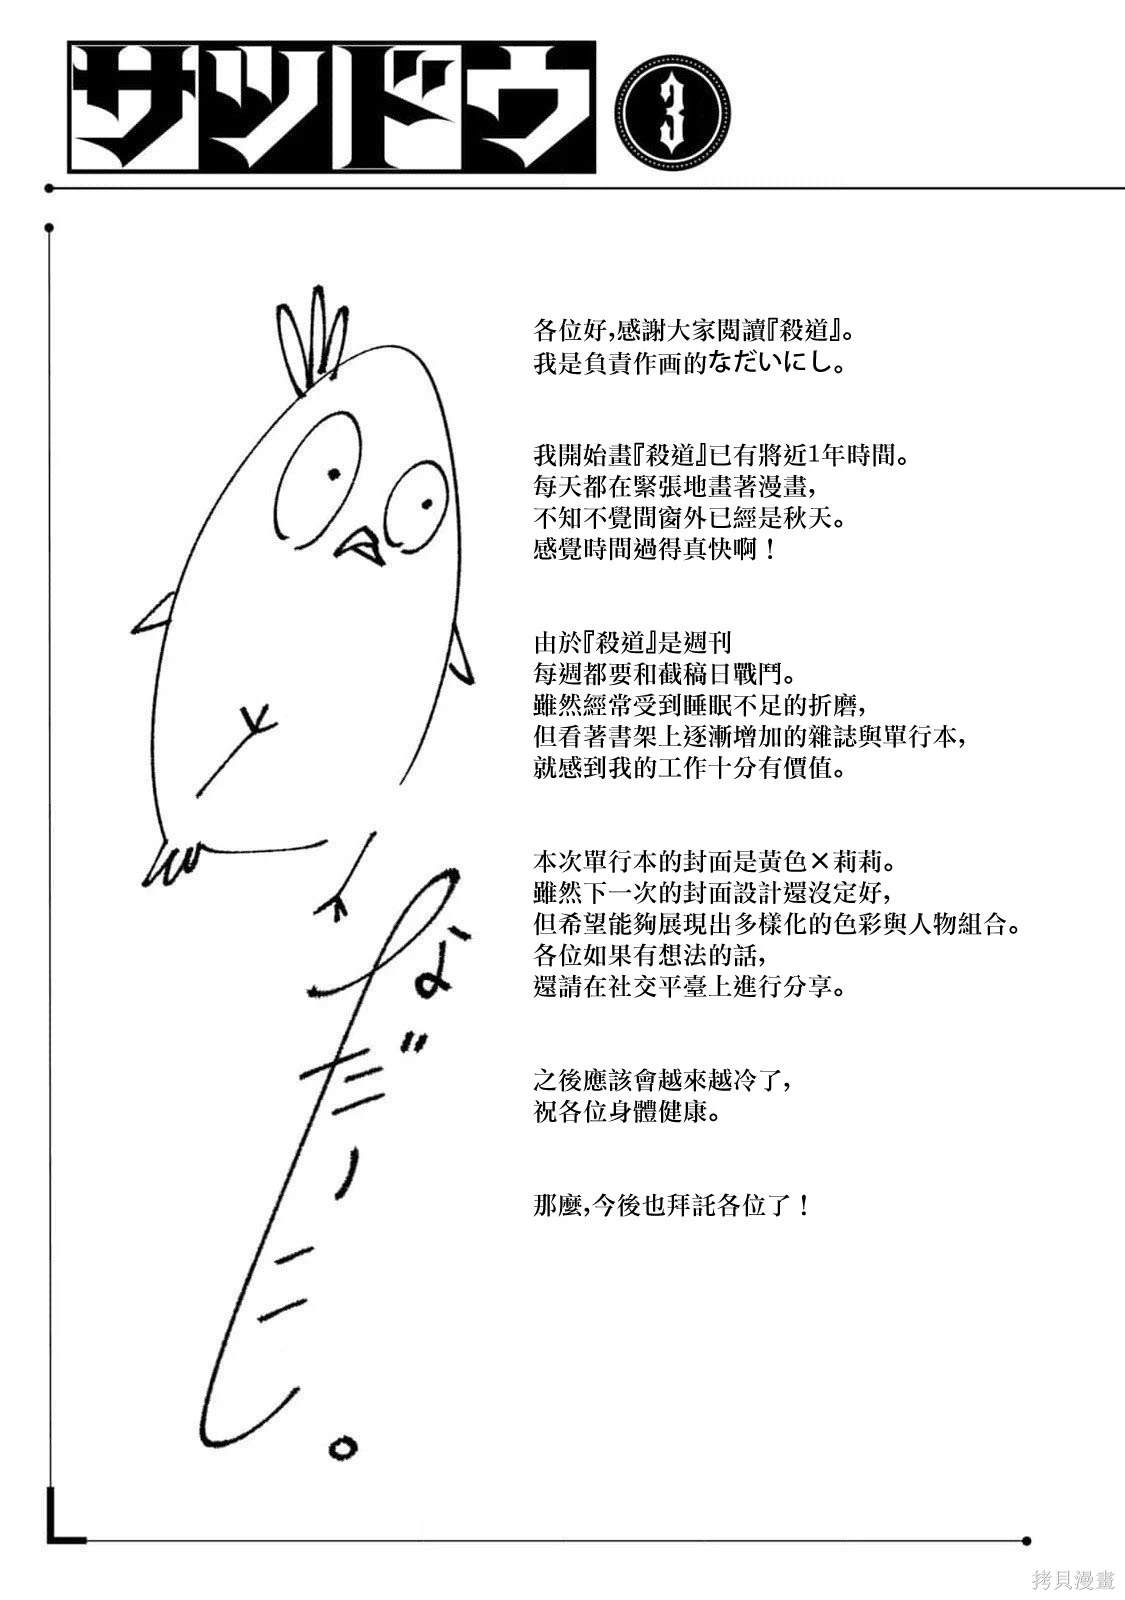 サツドウ 3
各位好,感謝大家閱讀『殺道』。
我是負責作画的なだいにし。
我開始畫『殺道』已有將近1年時間。
每天都在緊張地畫著漫畫,
不知不覺間窗外已經是秋天。
感覺時間過得真快啊！
由於『殺道』是週刊
每週都要和截稿日戰鬥。
雖然經常受到睡眠不足的折磨,
但看著書架上逐漸增加的雜誌與單行本,
就感到我的工作十分有價值。
本次單行本的封面是黃色×莉莉。
雖然下一次的封面設計還沒定好,
但希望能夠展現出多樣化的色彩與人物組合。
各位如果有想法的話,
還請在社交平臺上進行分享。
之後應該會越來越冷了,
祝各位身體健康。
那麼,今後也拜託各位了！
なだいにし。
拷貝漫畫